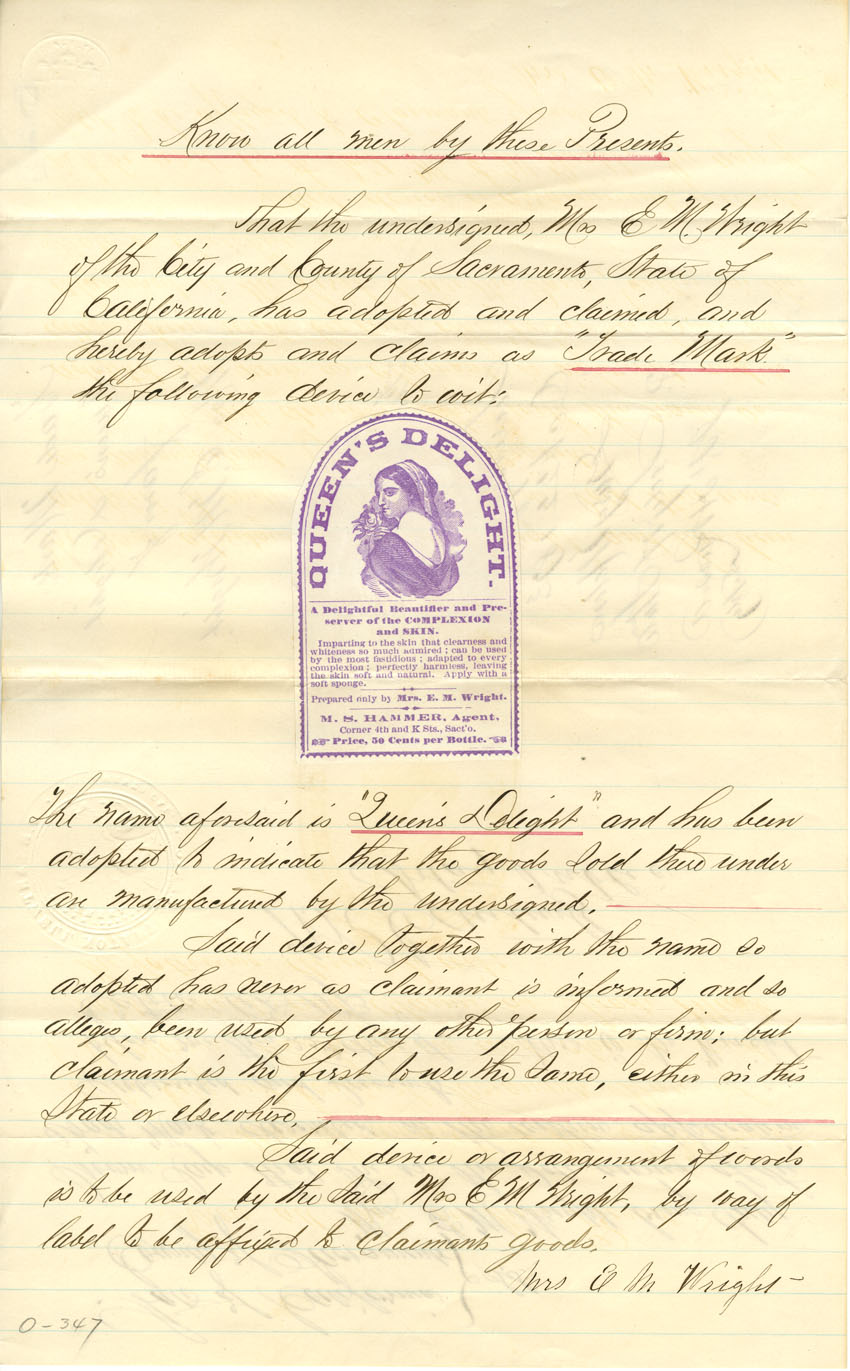 Know all men by these Presents.
That the undersigned, Mrs E M Wright
of the City and County of Sacramento, State of
California, has adopted and claimed, and
hereby adopts and claims as "Trade Mark"
the following device to wit:
QUEEN'S DELIGHT.
A Delightful Beautifier and Pre-
server of the COMPLEXION
and SKIN.
Imparting to the skin that clearness and
whiteness so much admired; can be used
by the most fastidious; adapted to every
complexion; perfectly harmless, leaving
the skin soft and natural. Apply with a
soft sponge.
Prepared only by Mrs. E. M. Wright.
M. S. HAMMER, Agent,
Corner 4th and K Sts., Sact'o.
Price, 50 Cents per Bottle.
The name aforesaid is "Queen's Delight" and has been
adopted to indicate that the goods sold there under
are manufactured by the undersigned.
Said device together with the name so
adopted has never as claimant is informed and so
alleges, been used by any other person or firm; but
claimant is the first to use the same, either in this
State or elsewhere.
Said device or arrangement of words
is to be used by the said Mrs E M Wright, by way of
label to be affixed to claimants goods.
Mrs E M Wright
O-347